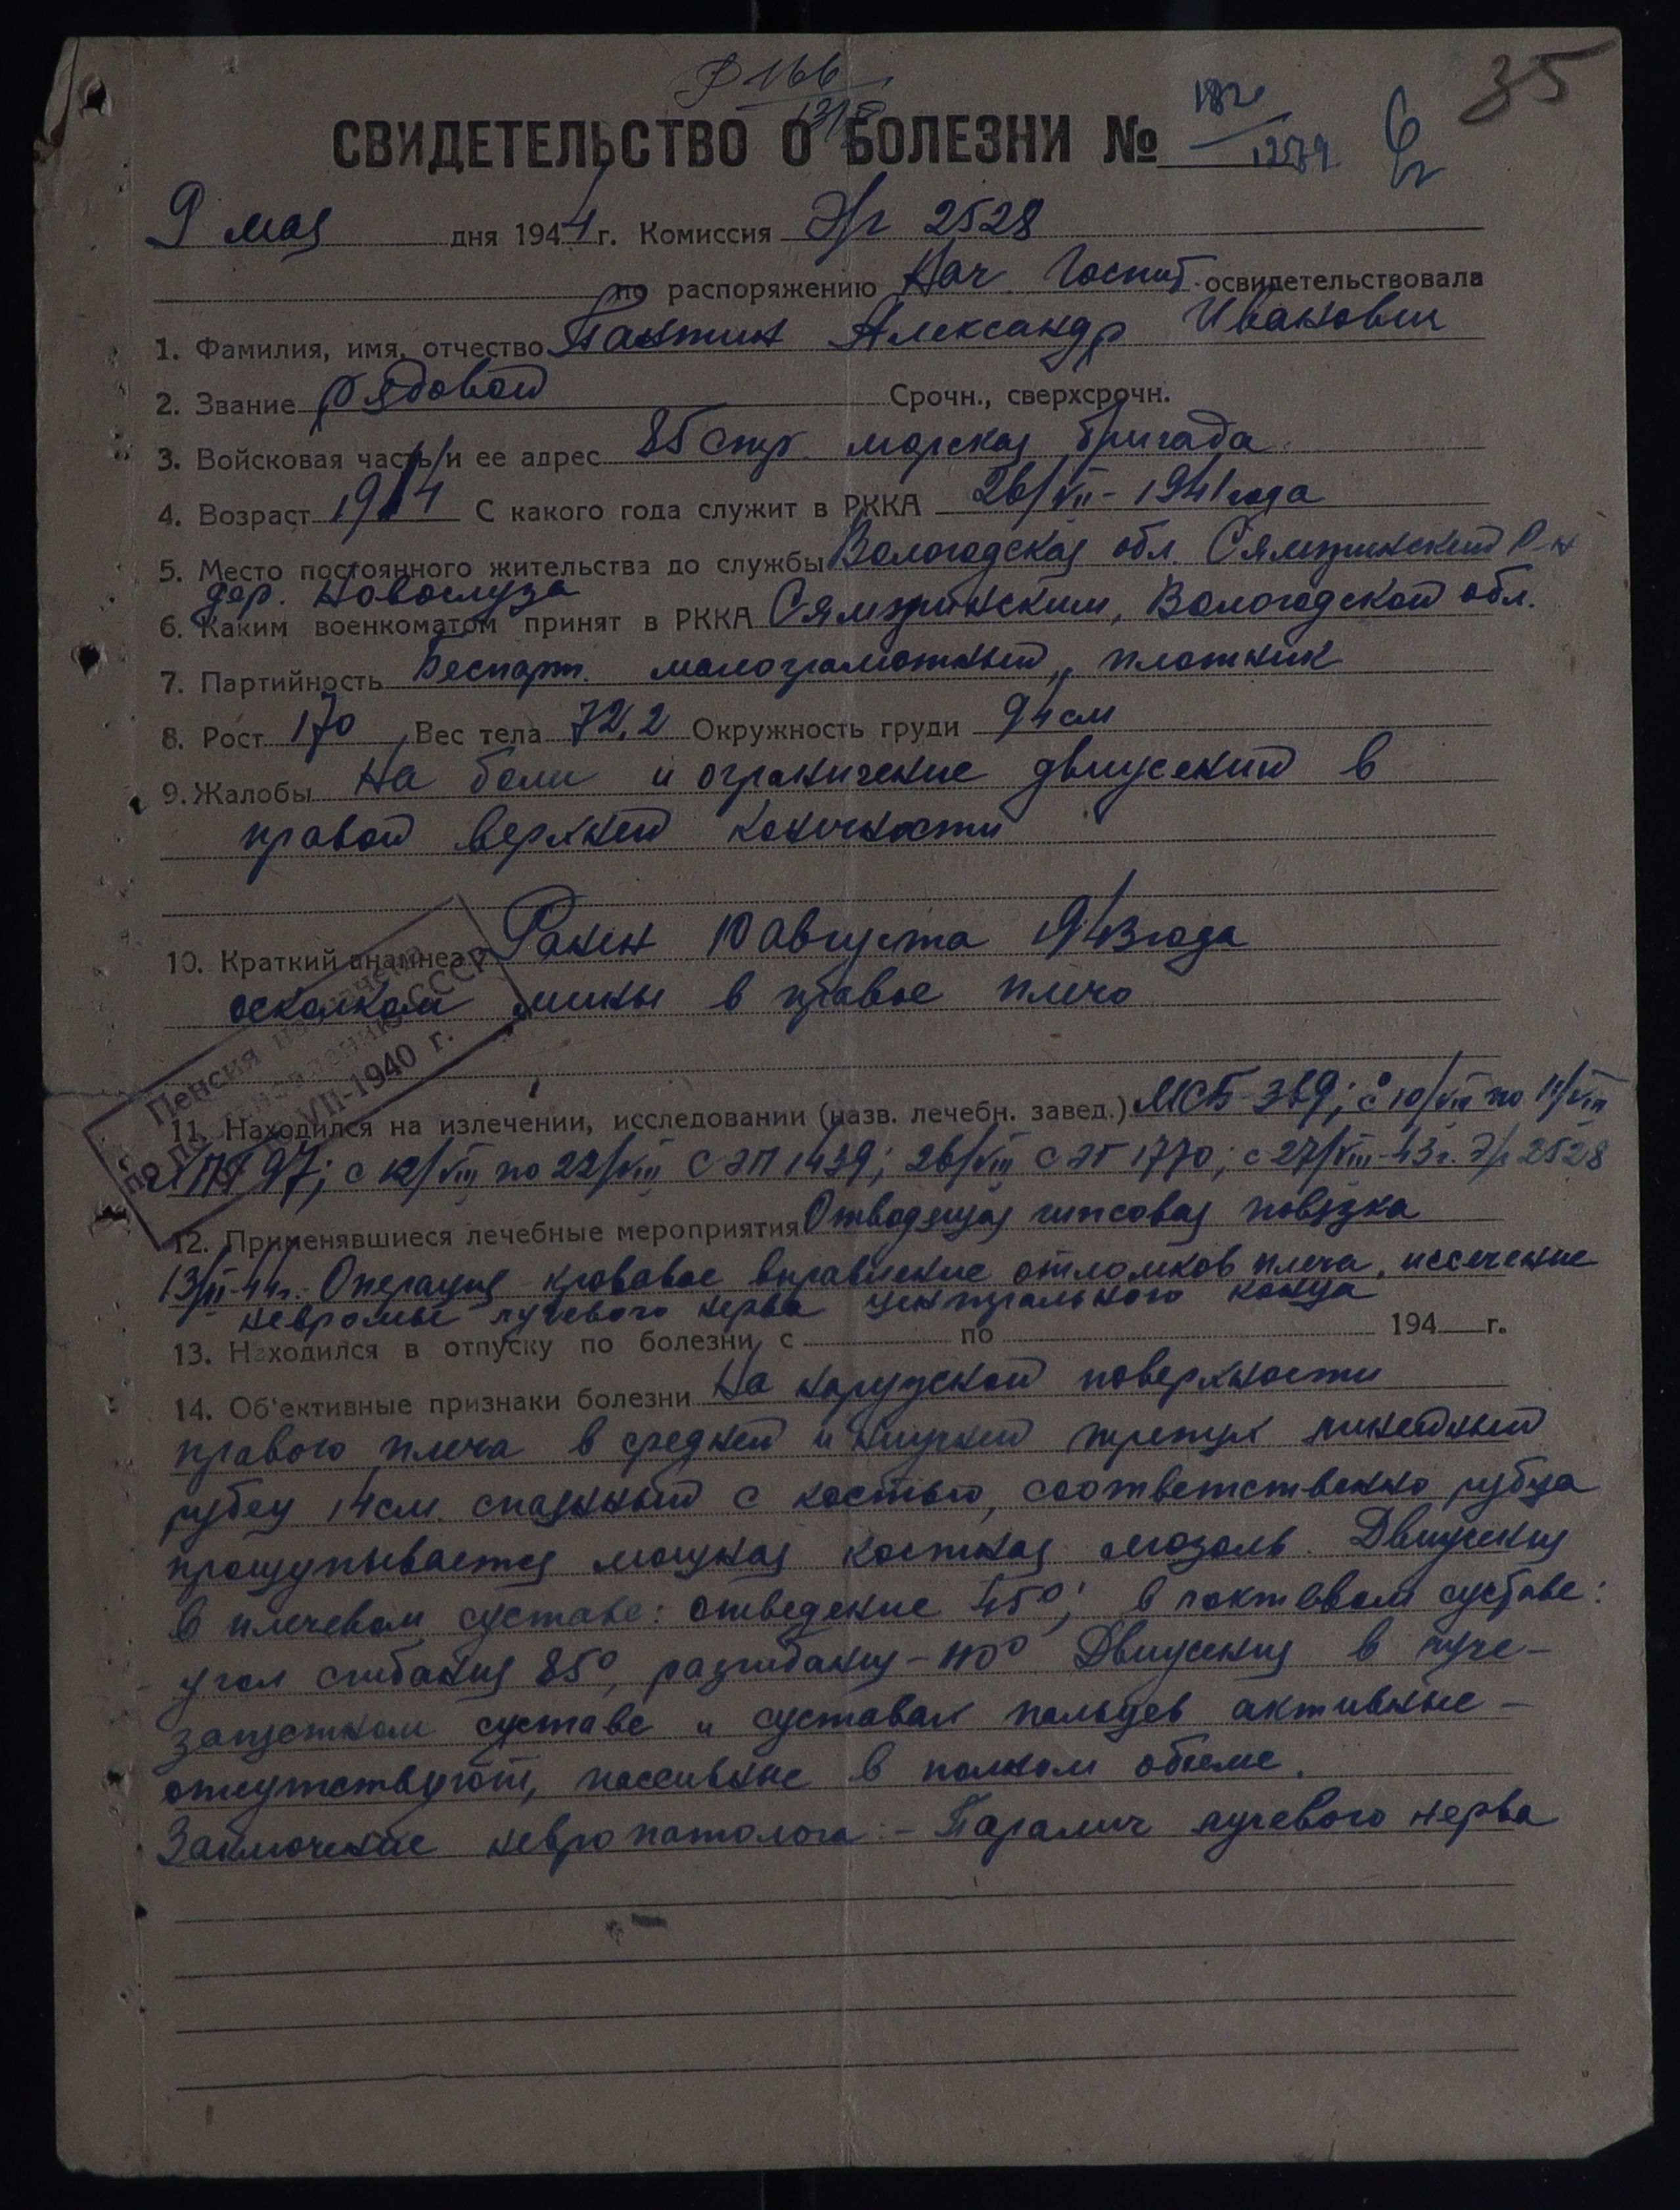 35
СВИДЕТЕЛЬСТВО О БОЛЕЗНИ №
9 мая дня 1944 г. Комиссия Э/г 2528
по распоряжению Нач. Госпит. освидетельствовала
1. Фамилия, имя, отчество Пантин Александр Иванович
2. Звание рядовой Срочн., сверхсрочн.
3. Войсковая часть и ее адрес 85 стр. морская бригада
4. Возраст 1914 С какого года служит в РККА 26/VII - 1941 года
5. Место постоянного жительства до службы Вологодская обл. Сямженский р-н
дер. Новослуза
6. Каким военкоматом принят в РККА Сямженским, Вологодской обл.
7. Партийность Беспарт. малограмотный, плотник
8. Рост 170 Вес тела 72,2 Окружность груди 94 см
9. Жалобы На боли и ограничение движений в
правой верхней конечности
10. Краткий анамнез Ранен 10 августа 1943 года
осколком мины в правое плечо
Пенсия назначена
по постановлению СССР
VII-1940 г.
11. Находился на излечении, исследовании (назв. лечебн. завед.) МСБ 369; с 10/VIII по 11/VIII
ППГ 97; с 12/VIII по 22/VIII СЭГ 1439; 26/VIII СЭГ 1770; с 27/VIII-43 г. Э/г 2528
12. Применявшиеся лечебные мероприятия Отводящая гипсовая повязка
13/II-44г. Операция - кровавое вправление отломков плеча, иссечение
невромы лучевого нерва центрального конца
13. Находился в отпуску по болезни с по 194 г.
14. Об'ективные признаки болезни На наружной поверхности
правого плеча в средней и нижней третях линейный
рубец 14 см. спаянный с костью, соответственно рубца
прощупывается мощная костная мозоль. Движения
в плечевом суставе: отведение 45°; в локтевом суставе:
угол сгибания 85°, разгибания - 110° Движения в луче-
запястном суставе и суставах пальцев активные -
отсутствуют, пассивные в полном объеме.
Заключение невропатолога: - Паралич лучевого нерва